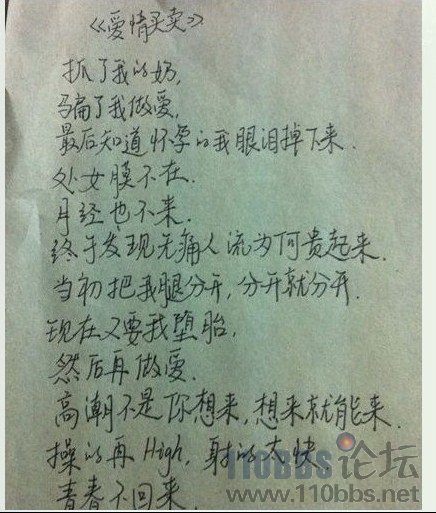 《爱情买卖》
抓了我的奶,
骗了我做爱,
最后知道怀孕的我眼泪掉下来.
处女膜不在.
月经也不来.
终于发现无痛人流为何贵起来.
当初把我腿分开,分开就分开.
现在又要我堕胎,
然后再做爱.
高潮不是你想来,想来就能来.
操的再High,射的太快
青春不回来.
110BBS论坛
www.110bbs.net